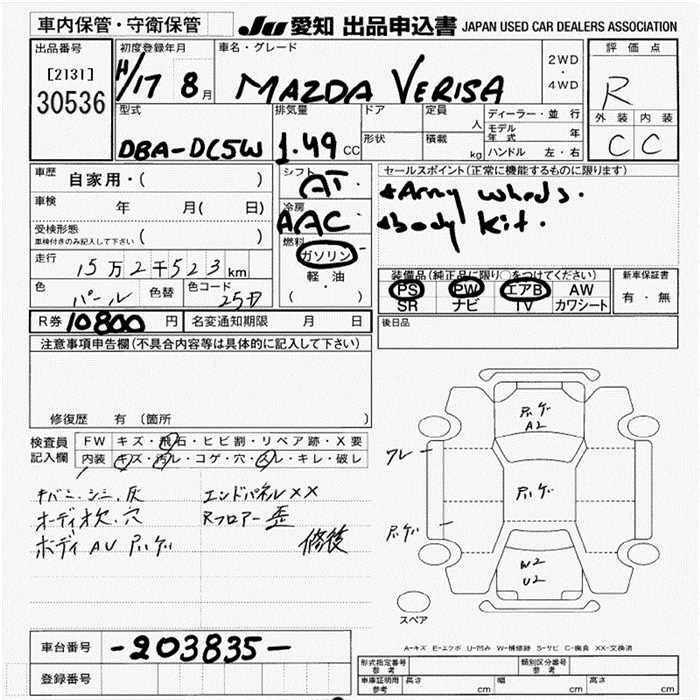 車内保管・守衛保管
JU 愛知 出品申込書 JAPAN USED CAR DEALERS ASSOCIATION
出品番号
[2131]
30536
初度登録年月
H/17 8月
車名・グレード
MAZDA VERISA
2WD
・
4WD
評価点
R
外装 内装
C C
型式
DBA-DC5W
排気量
1.49 CC
ドア
形状
定員 人
積載 kg
ディーラー・並行
モデル年式 年
ハンドル 左・右
車歴 自家用・( )
車検 年 月( 日)
受検形態
車検付きのみ記入して下さい ( )
走行 15万2千523km
色 パール 色替 色コード 25D
シフト AT
冷房 AAC
燃料 ガソリン
軽・油
( ・ )
セールスポイント(正常に機能するものに限ります)
*Army wheels.
*body kit.
装備品(純正品に限り○をつけてください)
PS PW エアB AW
SR ナビ TV カワシート
新車保証書
有・無
R券 10800 円 名変通知期限 月 日
後日品
注意事項申告欄(不具合内容等は具体的に記入して下さい)
修復歴 有(箇所 )
検査員 記入欄
FW キズ・飛石・ヒビ割・リペア跡・X要
内装 キズ・汚レ・コゲ・穴・スレ・キレ・破レ
キバミ.シミ.灰 エンドパネルXX
オーディオ欠.穴 Rフロアー歪
ボディAU 修復
A2
ワレ
W2
U2
スペア
A-キズ E-エクボ U-凹み W-補修跡 S-サビ C-腐食 XX-交換済
車台番号 -203835-
登録番号
形式指定番号
参考
類別区分番号
参考
車庫証明用
参考
長さ cm 幅 cm 高さ cm